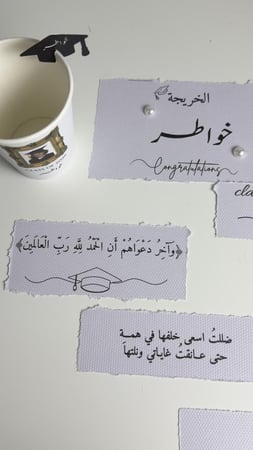 خواطر
الخريجة
خواطر
Congratulations
cla
﴿وَآخِرُ دَعْوَاهُمْ أَنِ الْحَمْدُ لِلَّهِ رَبِّ الْعَالَمِينَ﴾
ظللتُ اسعى خلفها في همـة
حتى عـانقتُ غاياتي ونلتها